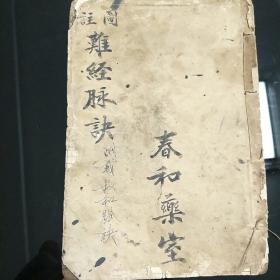 圖註
難經脉訣
春和藥室